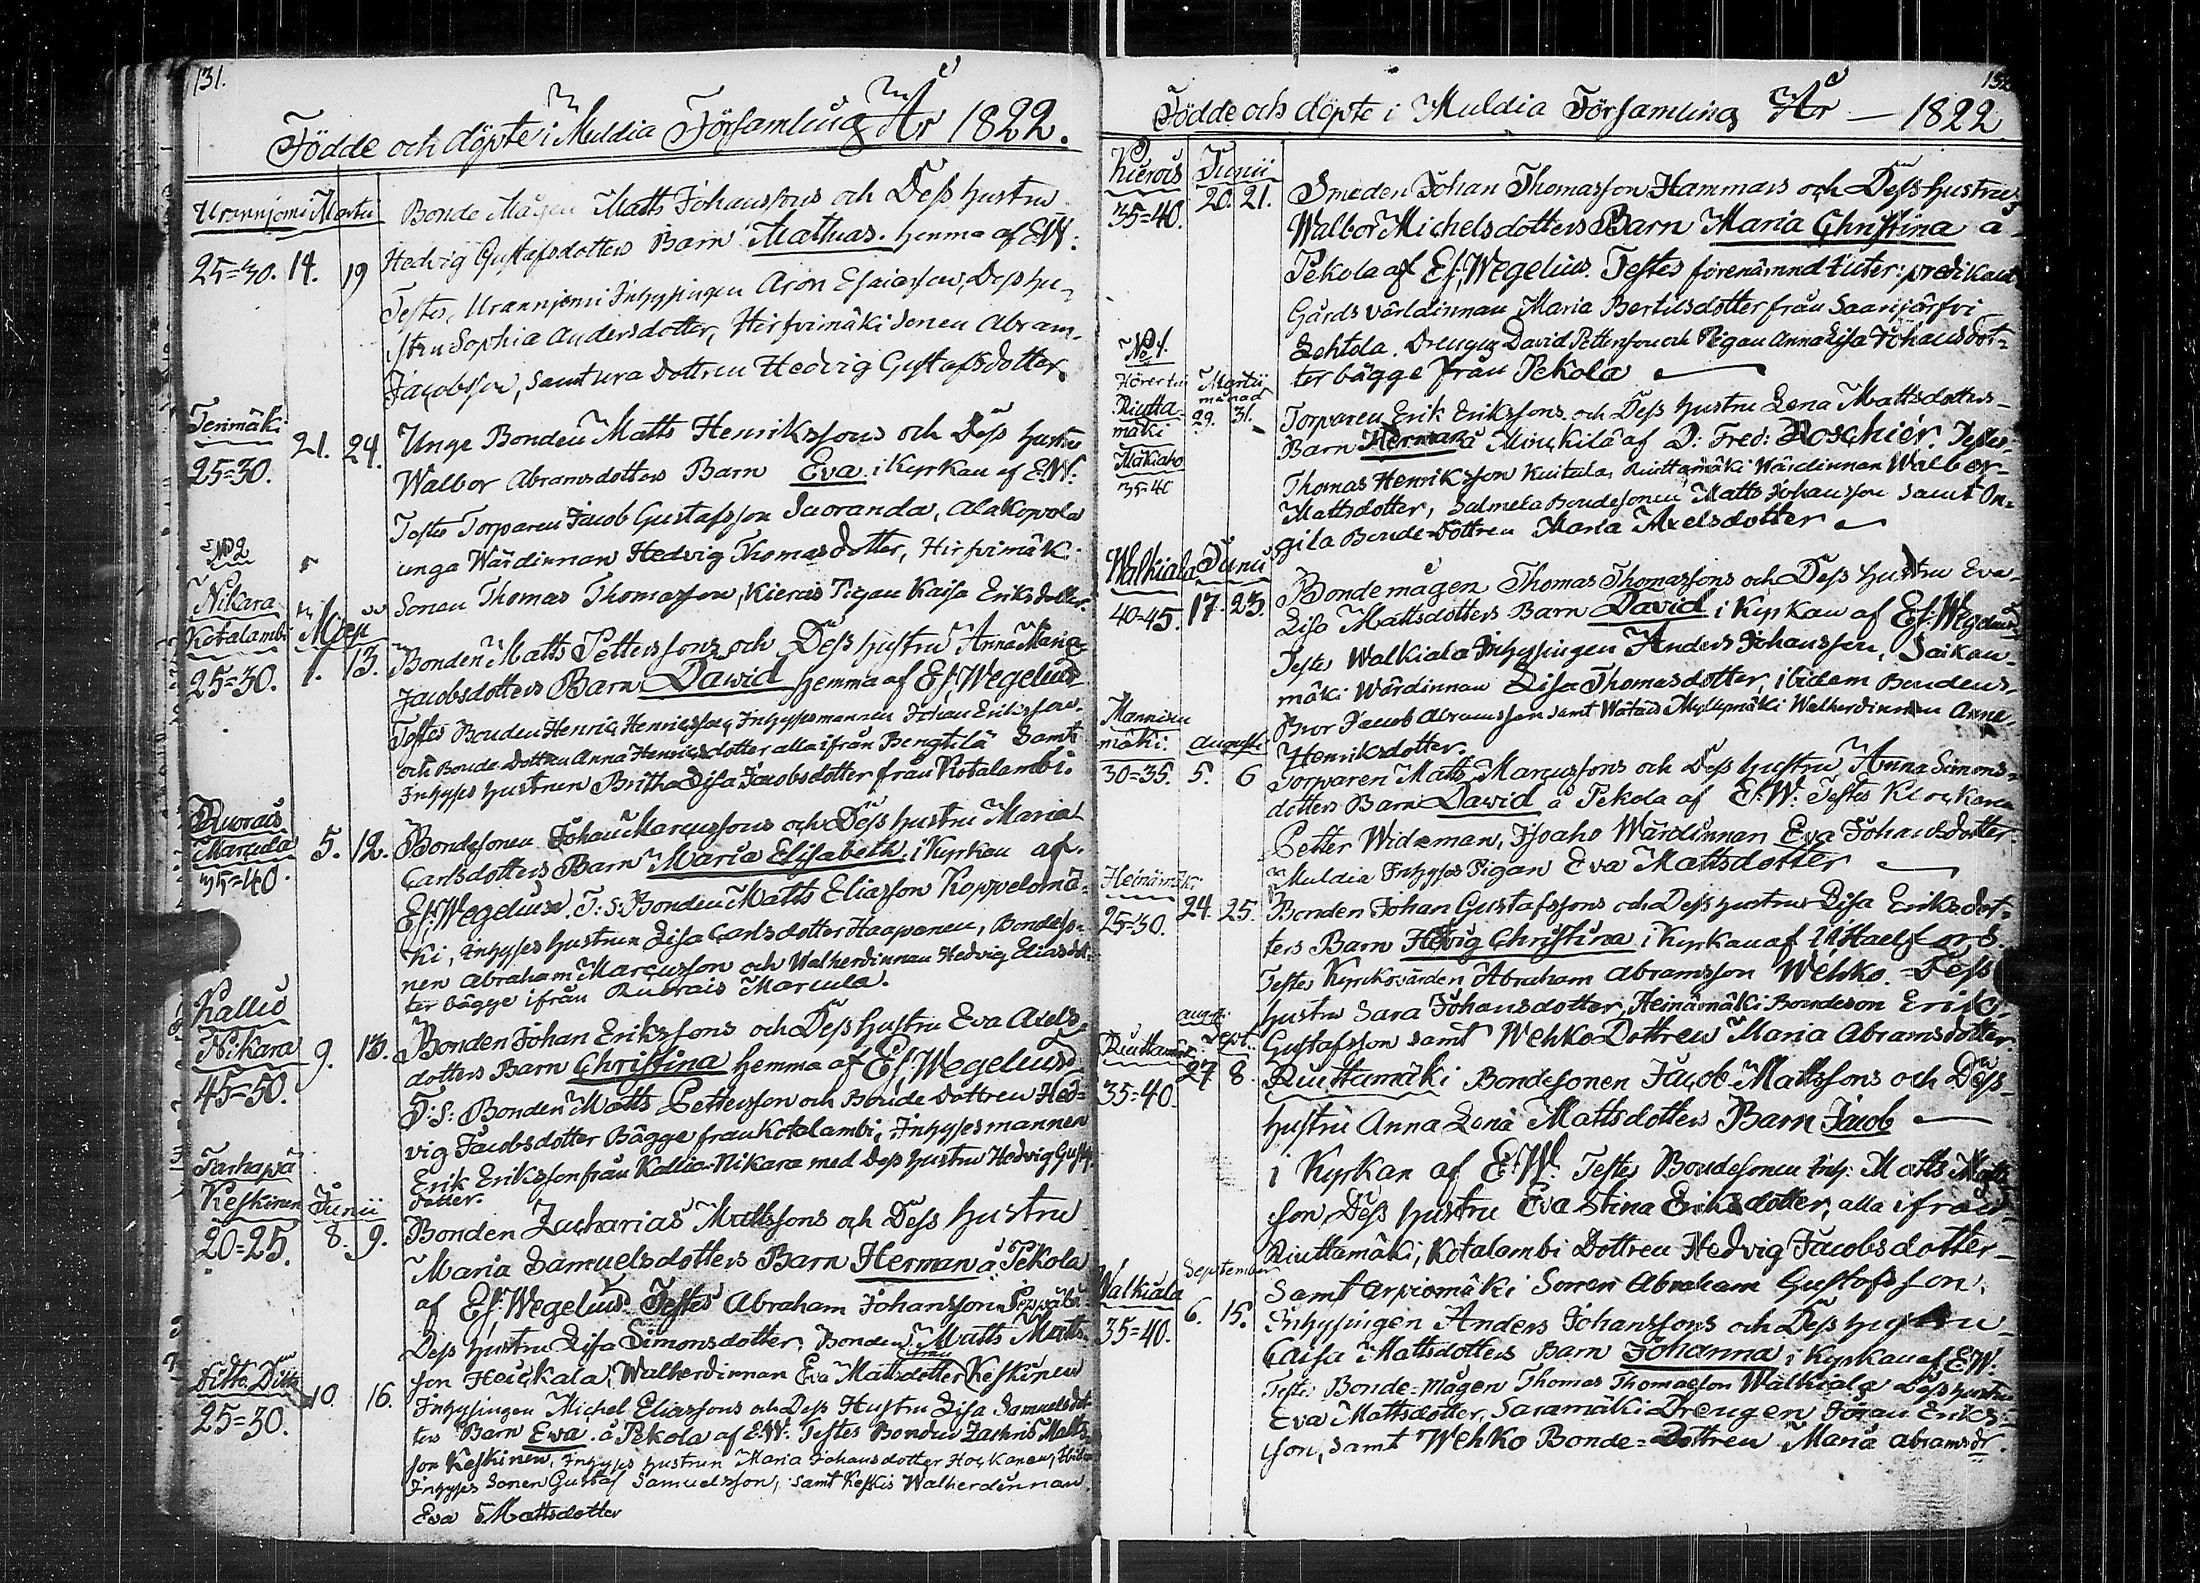 131.
Födde och döpte i Muldia Församling År 1822.
Urannjemi Martii
25=30. 14. 19
Bonde Mågen Matts Johanssons och Dess hustru
Hedvig Gustafsdotters Barn Mathias. hemma af E.W:
Testes, Urannjemi Inhysingen Aron Esaiasson, Dess hu-
stru Sophia Andersdotter, Hirfvimäki Sonen Abram
Jacobsson, samt ura Dottren Hedvig Gustafsdotter.
Terimäki
25=30.
21. 24.
Unge Bonden Matts Henrikssons och Dess hustru
Walbor Abramsdotters Barn Eva i Kyrkan af E.W:
Testes Torparen Jacob Gustafsson Suoranda, Alakopola
unga Wärdinnan Hedvig Thomasdotter, Hirfvimäki
Sonen Thomas Thomasson, Kierois Pigan Kaisa Eriksdotter.
No 2
Nikara
Kotalambi
25=30.
Maji
1. 13.
Bonden Matts Pettersons och Dess hustru Anna Maria
Jacobsdotters Barn David hemma af Es: Wegelius
Testes Bonden Henric Henricsson, Inhysesmannen Johan Eriksson
och Bonde Dottren Anna Henricsdotter alla ifrån Bengtilä Samt
Inhyses hustrun Britha Lisa Jacobsdotter från Kotalambi.
Ruorais
Marcula
35=40.
5. 12.
Bondesonen Johan Marcussons och Dess hustru Maria
Carlsdotters Barn Maria Elisabeth i Kyrkan af
Es: Wegelius. T:s: Bonden Matts Eliasson Koppelomä-
ki, Inhyses hustrun Lisa Carlsdotter Haapanen, Bondeso-
nen Abraham Marcusson och Walherdinnan Hedvig Eliasdot-
ter bägge ifrån Ruorais Marcula.
Kallio
Nikara
45=50.
9. 13.
Bonden Johan Erikssons och Dess hustru Eva Axels-
dotters Barn Christina hemma af Es: Wegelius
T:s: Bonden Matts Pettersson och Bonde Dottren Hed-
vig Jacobsdotter Bägge från Kotalambi, Inhysesmannen
Erik Eriksson från Kallio-Nikara med Dess hustru Hedvig Gustafs
dotter.
Tarhapä
Keskinen
20=25.
Junii
8. 9.
Bonden Zacharias Mattssons och Dess hustru
Maria Samuelsdotters Barn Herman å Pekola
af Es: Wegelius. Testes Abraham Johansson
Dess hustru Lisa Simonsdotter, Bonden Matts Matts-
son Heickala, Walherdinnan Eva Mattsdotter från Keskinen
Ditto Ditto
25=30.
10. 16.
Inhysingen Michel Eliassons och Dess Hustru Lisa Samuelsdot-
ters Barn Eva å Pekola af E.W: Testes Bonden Zachris Matts-
son Keskinen, Inhyses hustrun Maria Johansdotter Hockanen,
Inhyses Sonen Gustaf Samuelsson, samt Keskis Walherdinnan
Eva Mattsdotter
132
Födde och döpte i Muldia Församling År — 1822
Kierois
35=40.
Junii
20. 21.
Smeden Johan Thomasson Hammars och Dess hustru
Walbor Michelsdotters Barn Maria Christina å
Pekola af Es: Wegelius. Testes förenämnd predikant
Gårds världinnan Maria Bertilsdotter från Saarijärfvi
Lehtola. Drengen David Pettersson och Pigan Anna Lisa Johansdot-
ter bägge från Pekola
No 1.
Hörer till
Riutta-
mäki
Mäkiaho
35=40
Martii
månad
29. 31.
Torparen Erik Erikssons och Dess hustru Lena Mattsdotters
Barn Herman å Minckilä af D: Fred: Roschier. Testes
Thomas Henriksson Kuitala, Riuttamäki Wärdinnan Walbor
Mattsdotter, Salmela Bondesonen Matts Johansson samt On-
gila Bonde-Dottren Maria Axelsdotter
Walkiala
40=45.
Junii
17. 23.
Bondemågen Thomas Thomassons och Dess hustru Eva
Lisa Mattsdotters Barn David i Kyrkan af Es: Wegelius
Testes Walkiala Inhysingen Anders Johansson, Saikan-
mäki Wärdinnan Lisa Thomasdotter, ibidem Bondens
Bror Jacob Abramsson samt Myllymäki Walherdinnan Anna
Henriksdotter.
Mannisen
mäki.
30=35.
Augusti
5. 6
Torparen Matts Marcussons och Dess hustru Anna Simons-
dotters Barn David å Pekola af E.W: Testes Klockaren
Petter Wideman, Isoaho Wärdinnan Eva Johansdotter
Muldia Inhyses Pigan Eva Mattsdotter
Heinämäki
25=30.
24. 25.
Bonden Johan Gustafssons och Dess hustrus Lisa Eriksdot-
ters Barn Hedvig Christina i Kyrkan af
Testes Kyrkovärden Abraham Abramsson Wehko. Dess
hustru Sara Johansdotter, Heinämäki Bondeson Erik
Gustafsson samt Wehko Dottren Maria Abramsdotter.
Riuttamäki
35=40.
Aug: Sept.
27. 8.
Riuttamäki Bondesonen Jacob Mattssons och Dess
hustru Anna Lena Mattsdotters Barn Jacob
i Kyrkan af E:W: Testes Bondesonen Matts Matts-
son, Dess hustru Eva Stina Eriksdotter, alla ifrån
Riuttamäki, Kotalambi Dottren Hedvig Jacobsdotter
Samt Arpiomäki Sonen Abraham Gustafsson.
Walkiala
35=40.
September
6. 15.
Inhysingen Anders Johanssons och Dess hustru
Caisa Mattsdotters Barn Johanna i Kyrkan af E.W.
Testes Bonde-mågen Thomas Thomasson Walkiala Dess hustru
Eva Mattsdotter, Saramäki Drengen Johan Eriks-
son, samt Wehko Bonde=Dottren Maria Abramsdr.